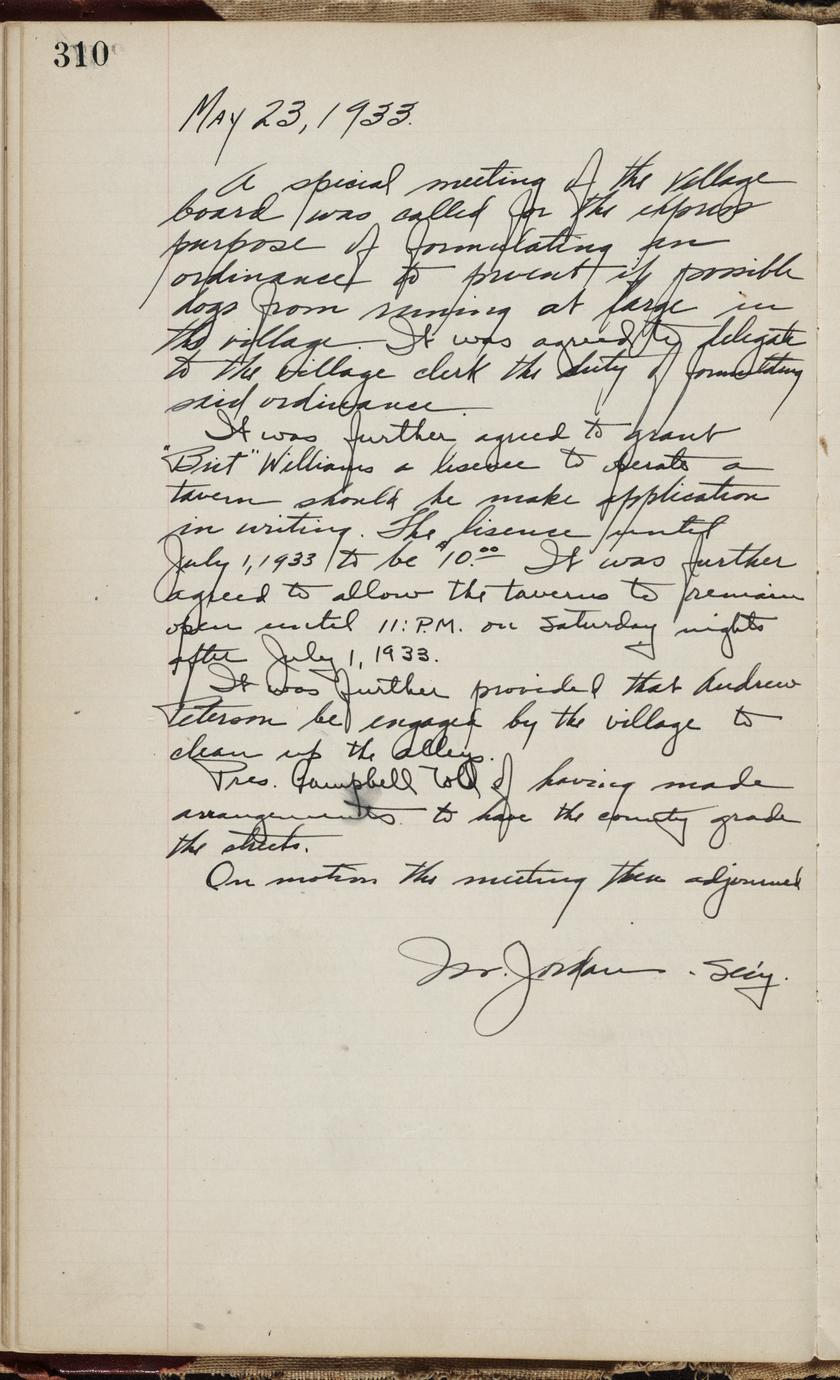 310
May 23, 1933.
A special meeting of the village
board was called for the express
purpose of formulating an
ordinance to prevent if possible
dogs from running at large in
the village. It was agreed to delegate
to the village clerk the duty of formulating
said ordinance.
It was further agreed to grant
"Brit" Williams a lisence to operate a
tavern should he make application
in writing. The lisence until
July 1, 1933 to be $10.00 It was further
agreed to allow the taverns to remain
open until 11: P.M. on Saturday nights
after July 1, 1933.
It was further provided that Andrew
Peterson be engaged by the village to
clean up the alleys.
Pres. Campbell told of having made
arrangements to have the county grade
the streets.
On motion the meeting then adjourned
Jordan - Sec'y.